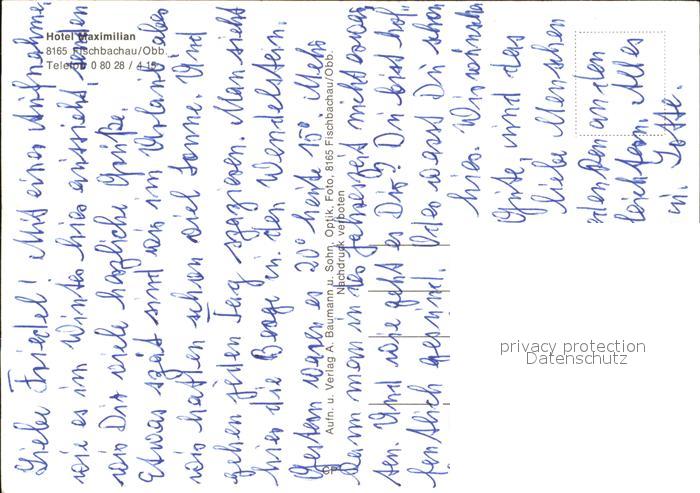 Hotel Maximilian
8165 Fischbachau/Obb.
Telefon 0 80 28 / 4 15
Liebe Friedel! Mit einer Aufnahme,
wie es im Winter hier aussieht, senden
wir Dir viele herzliche Grüße.
Etwas spät sind wir im Urlaub aber
wir hatten schon viel Sonne. Und
gehen jeden Tag spazieren. Man sieht
hier die Berge in den Wendelstein.
Gestern waren es 20° heute 15°. Mehr
kann man in der Jahreszeit nicht erwar-
ten. Und wie geht es Dir? Du bist hof-
fentlich gesund. Oder warst Du schon
hier. Wir wohnen
Güte, und das
liebe Menschen
werden an den
Alles
Lotte.
Aufn. u. Verlag A. Baumann u. Sohn, Optik, Foto, 8165 Fischbachau/Obb.
Nachdruck verboten
privacy protection
Datenschutz